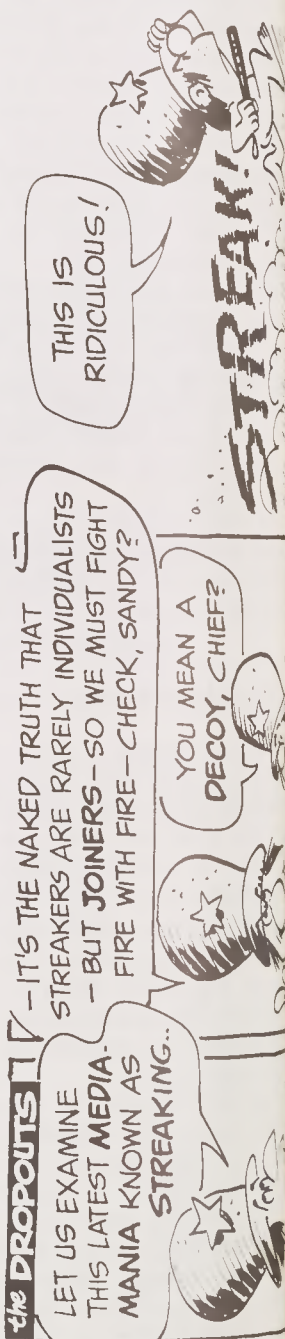 the DROPOUTS
LET US EXAMINE
THIS LATEST MEDIA-
MANIA KNOWN AS
STREAKING..
-IT'S THE NAKED TRUTH THAT
STREAKERS ARE RARELY INDIVIDUALISTS
- BUT JOINERS-SO WE MUST FIGHT
FIRE WITH FIRE-CHECK, SANDY?
YOU MEAN A
DECOY, CHIEF?
THIS IS
RIDICULOUS!
STREAK!